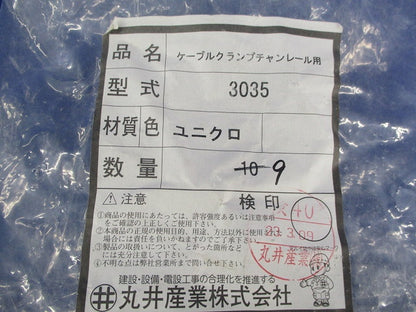 品名 ケーブルクランプチャンレール用
型式 3035
材質色 ユニクロ
数量 10 9
⚠注意 検印
①商品の使用にあたっては、許容強度あるいは注意事項
をご確認の上正しくご使用下さい。
②本商品の正規の使用目的、用途、方法以外に使用した
場合には責任を負いかねますのでご了承下さい。
③製品の取扱いについて、とがった箇所など
には充分注意して下さい。
④不明な点は弊社営業所まで問い合せ下さい。
23.3.09
丸井産業
建設・設備・電設工事の合理化を推進する
丸井産業株式会社